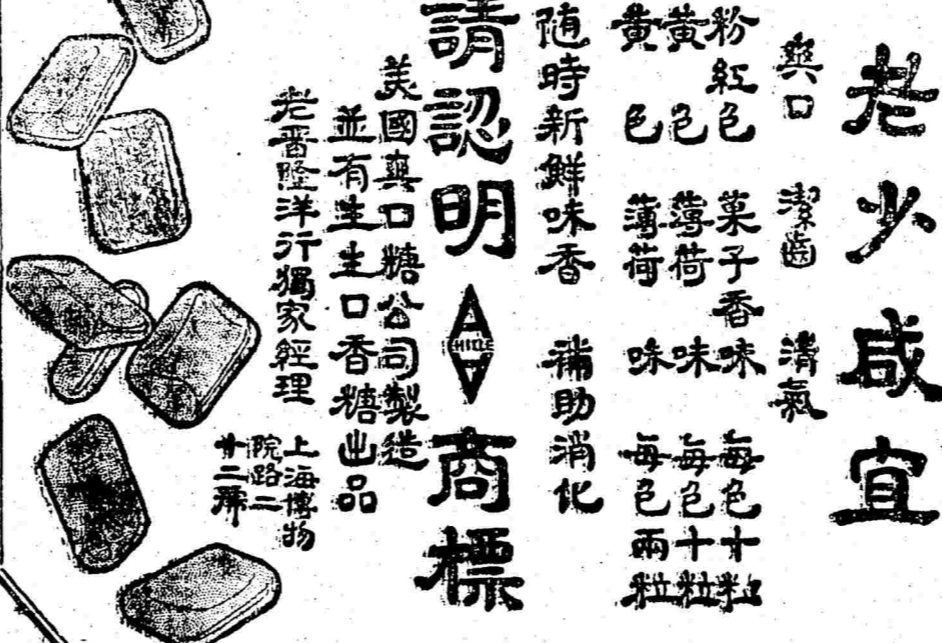 老少咸宜
爽口 潔齒 清氣
粉紅色 菓子香味 每色十粒
黃色 薄荷味 每色十粒
黃色 薄荷味 每色兩粒
随時新鮮味香 補助消化
請認明 商標
美國爽口糖公司製造
並有生生口香糖出品
老晋隆洋行獨家經理
上海博物
院路二
廿二號